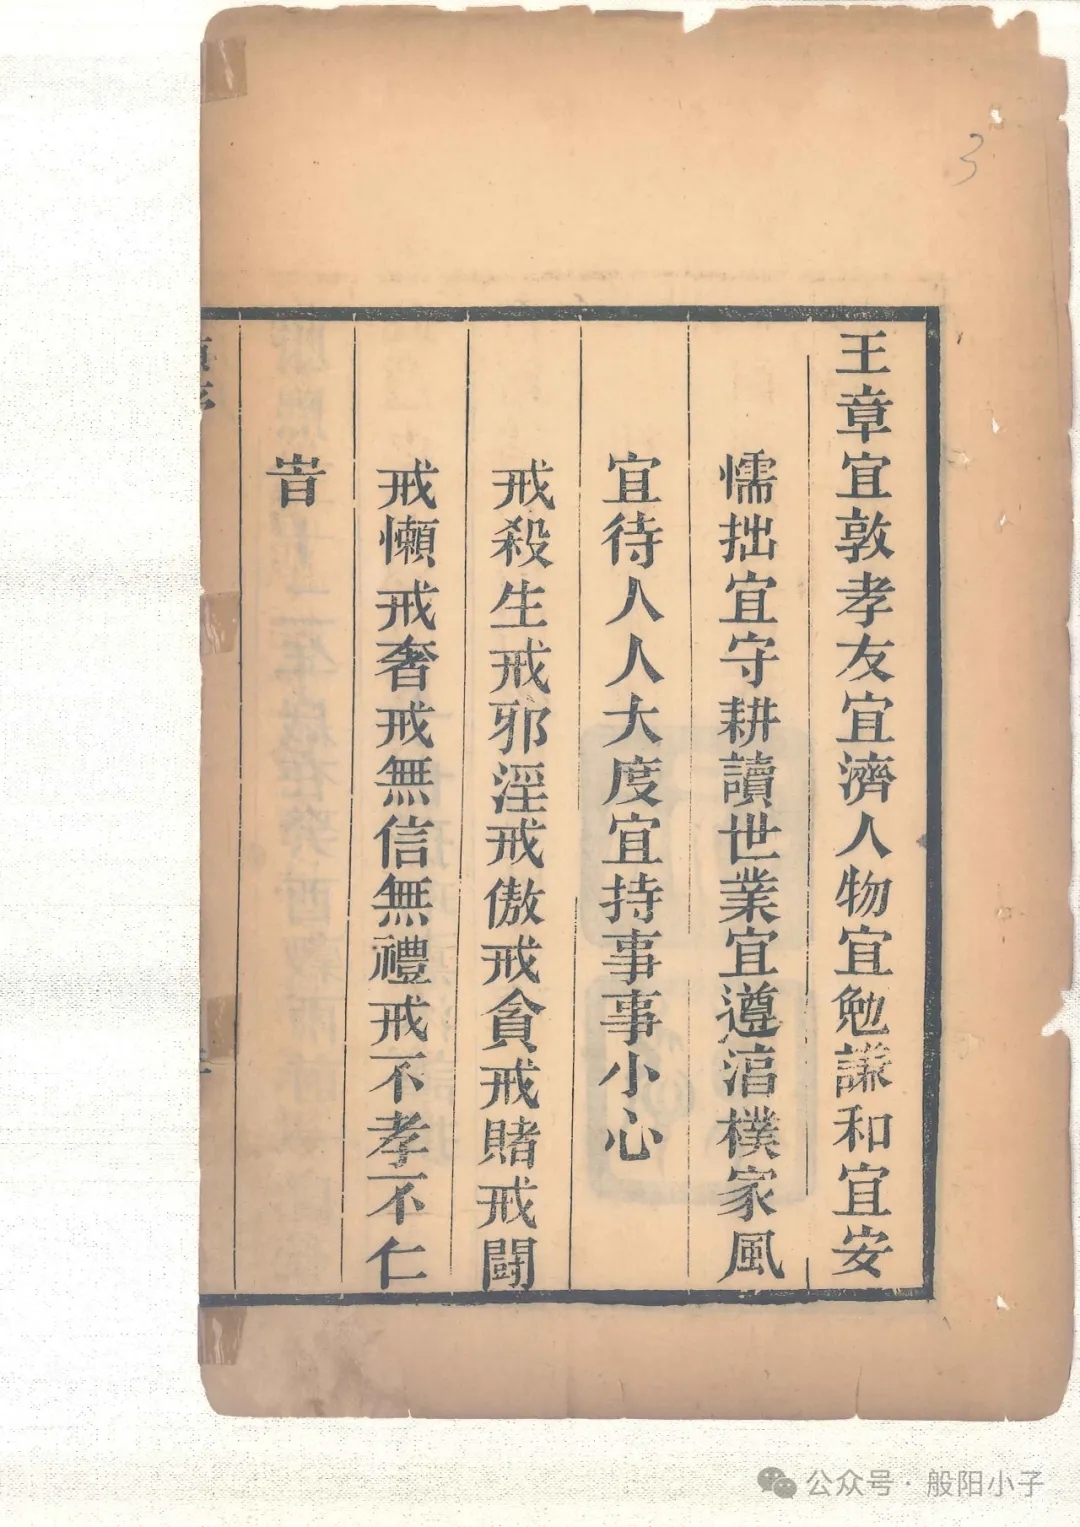 王章宜敦孝友宜濟人物宜勉謙和宜安
懦拙宜守耕讀世業宜遵湻樸家風
宜待人人大度宜持事事小心
戒殺生戒邪淫戒傲戒貪戒賭戒鬪
戒懶戒奢戒無信無禮戒不孝不仁
旹
3
公众号·般阳小子